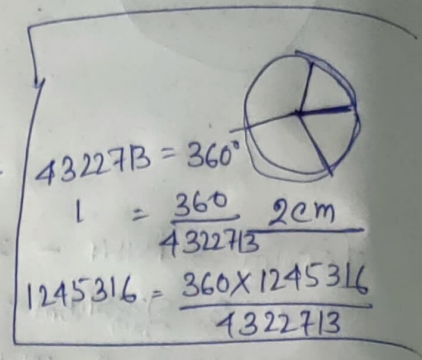 4322713 = 360°
1 = 360/4322713 2cm
1245316 = 360×1245316/4322713